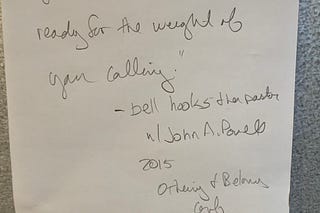 ready for the weight of
your calling."
- bell hooks + her pastor
w/ John A. Powell
2015
Othering & Belong
Conf